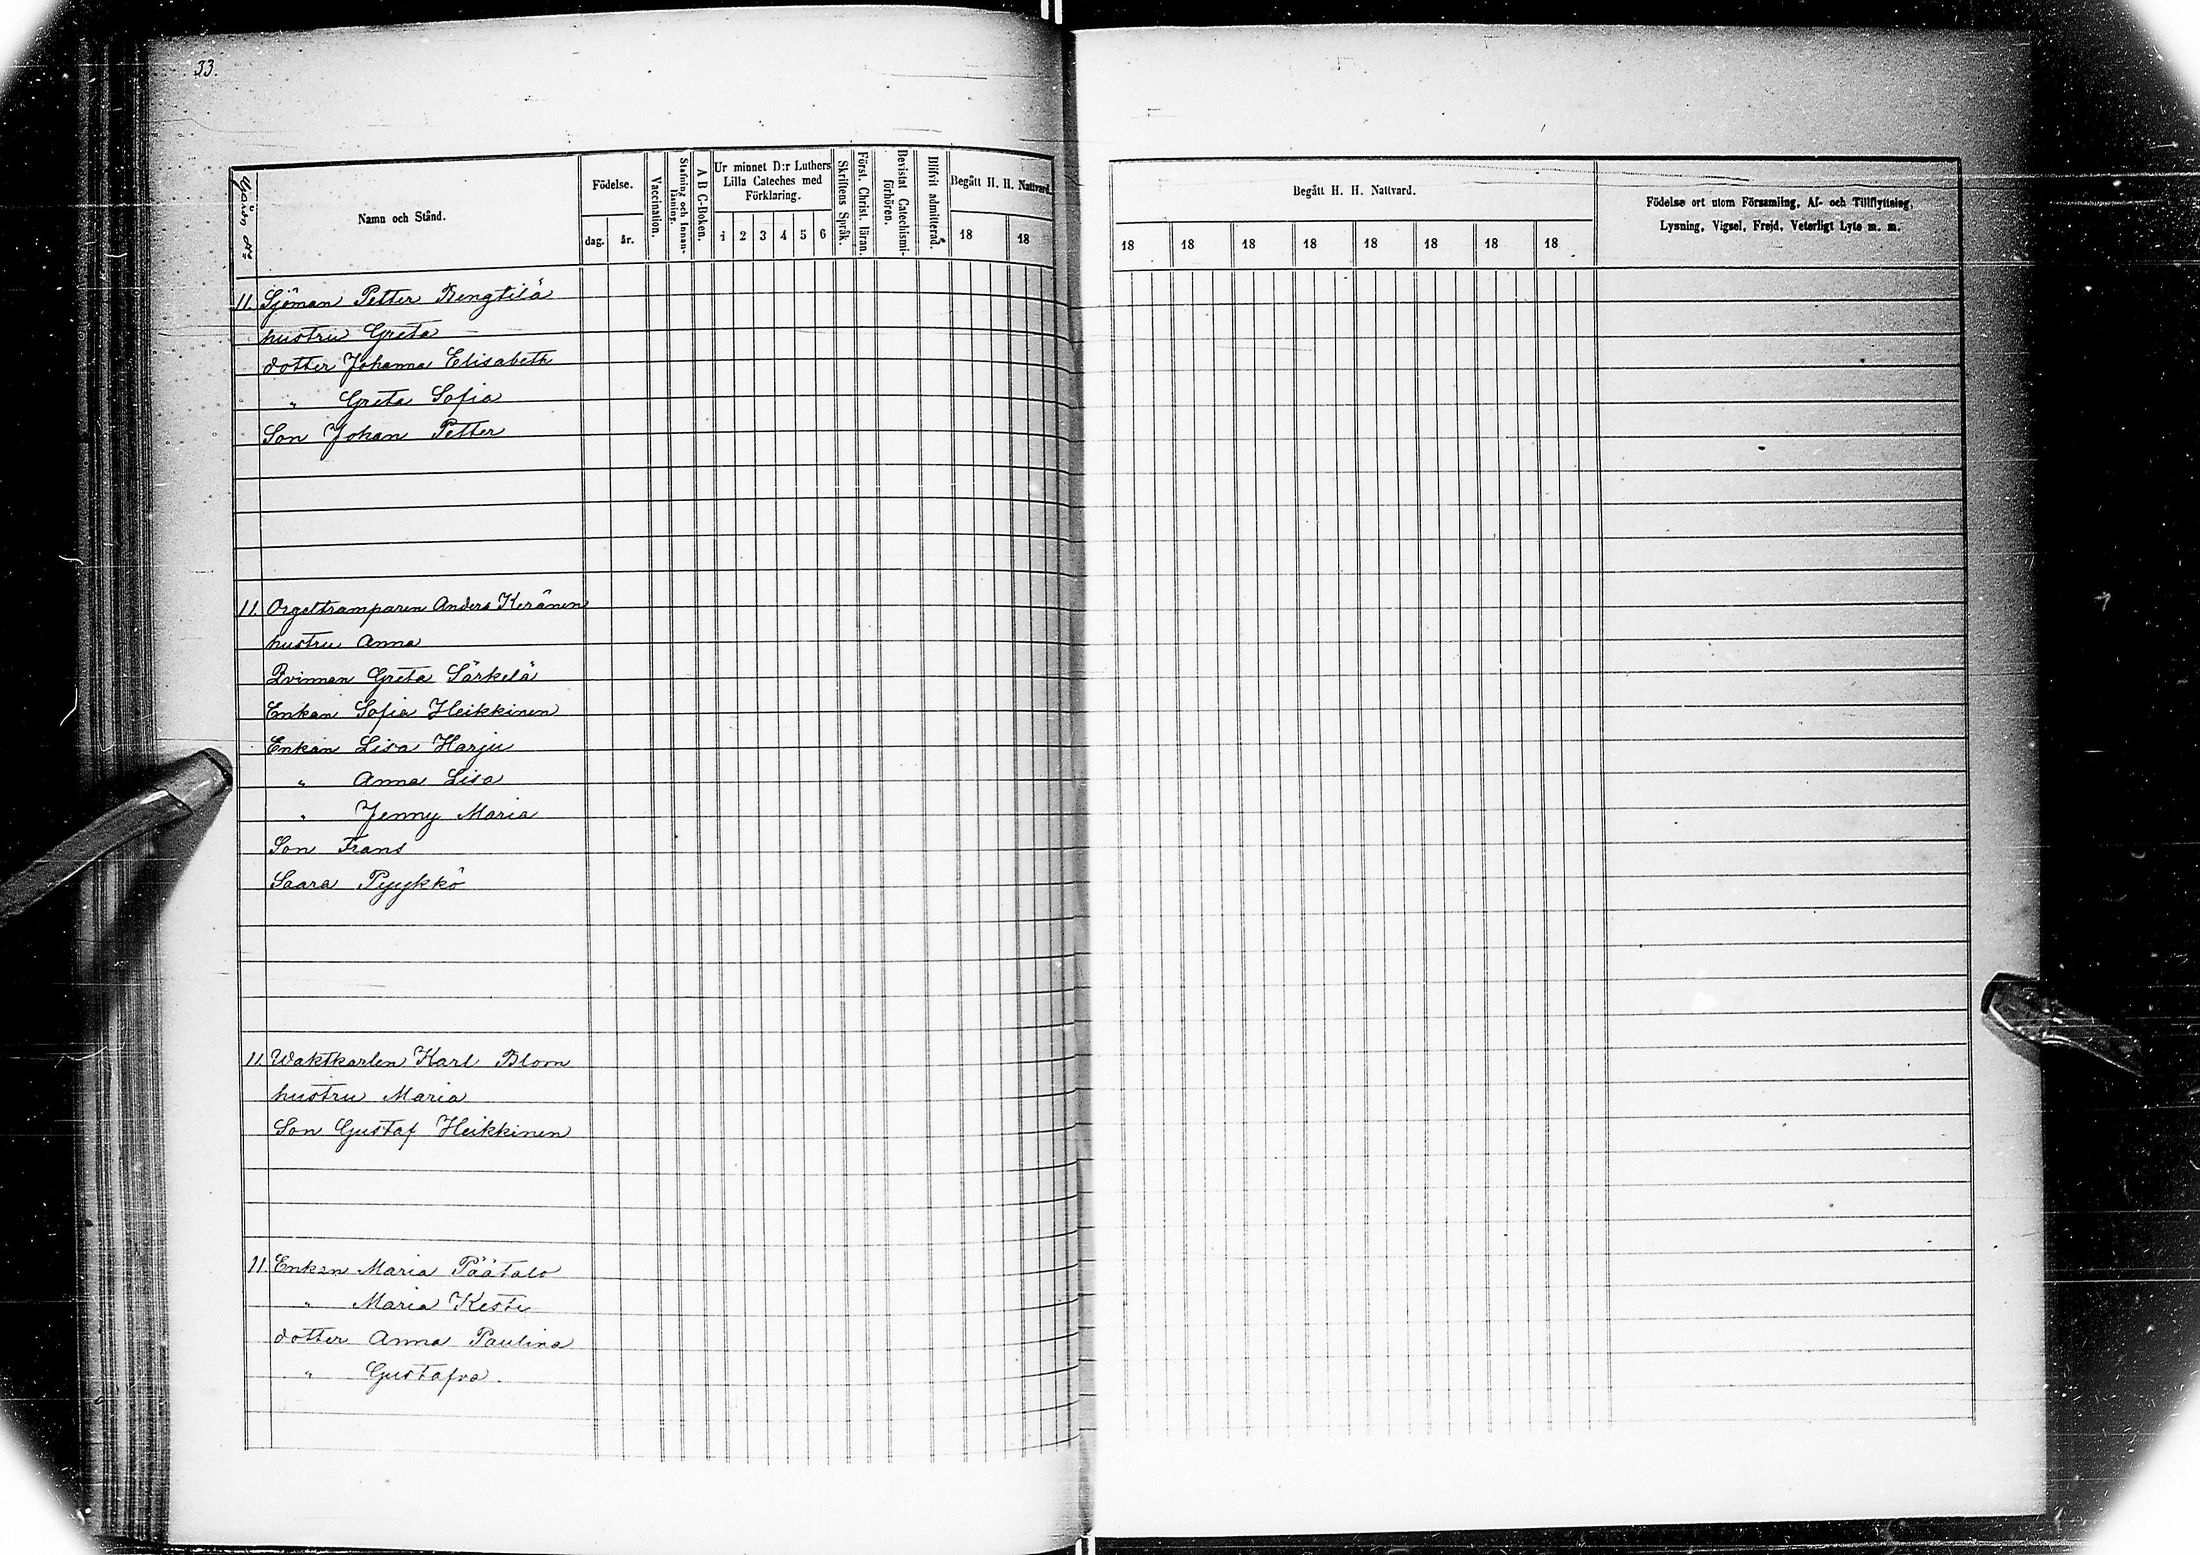 33.
Gården N:o
Namn och Stånd.
Födelse.
dag.
år.
Vaccination.
Stafning och Innanläsning.
A B C-Boken.
Ur minnet D:r Luthers
Lilla Cateches med
Förklaring.
1 2 3 4 5 6
Skriftens Språk.
Först. Christ. läran.
Bevistat Catechismi-
förhören.
Blifvit admitterad.
Begått H. H. Nattvard.
18 18
Begått H. H. Nattvard.
18 18 18 18 18 18 18 18
Födelse ort utom Församling, Af- och Tillflyttning,
Lysning, Vigsel, Frejd, Veterligt Lyte m. m.
11. Sjöman Petter Bengtilä
hustru Greta
dotter Johanna Elisabeth
" Greta Sofia
Son Johan Petter
11. Orgeltramparen Anders Keränen
hustru Anna
Qvinnan Greta Särkelä
Enkan Sofia Heikkinen
Enkan Lisa Harju
" Anna Lisa
" Jenny Maria
Son Frans
Saara Pyykkö
11. Waktkarlen Karl Blom
hustru Maria
Son Gustaf Heikkinen
11 Enkan Maria Päätalo
" Maria Kesti
dotter Anna Paulina
" Gustafva.